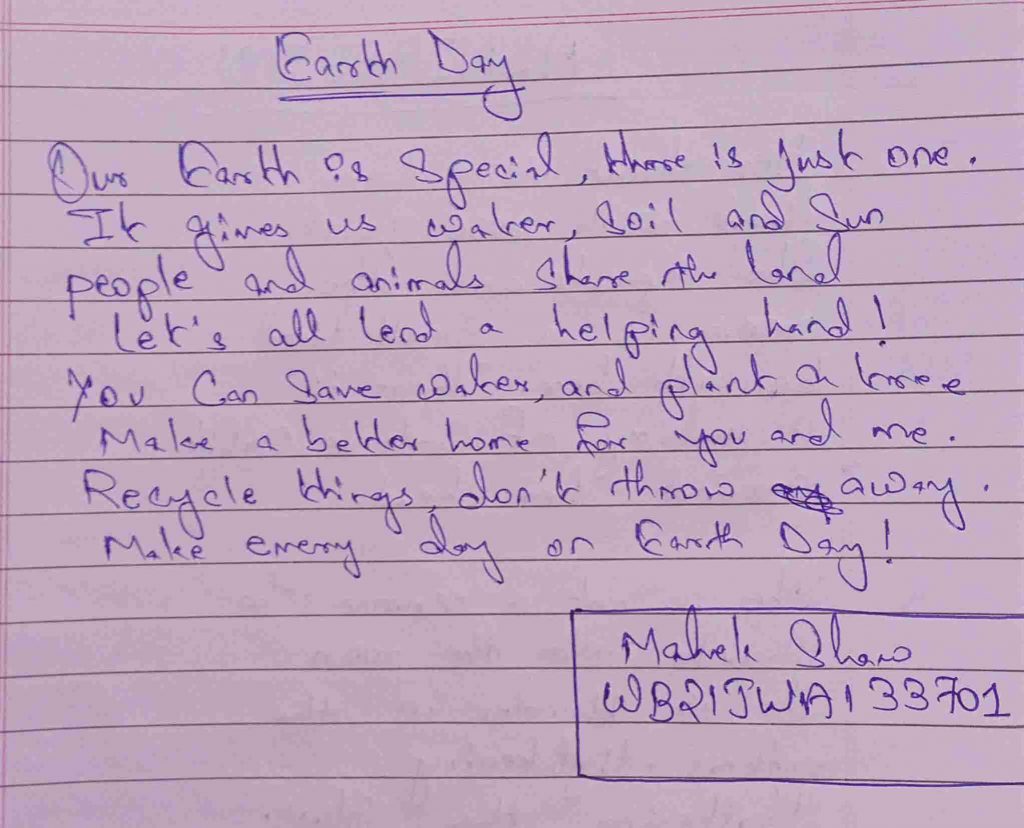 Earth Day
Our Earth is Special, there is just one.
It gives us water, Soil and Sun
people and animals Share the land
Let's all lend a helping hand!
You Can Save water, and plant a tree
Make a better home for you and me.
Recycle things, don't throw away.
Make every day on Earth Day!
Mahek Shaw
WB21JWA133701